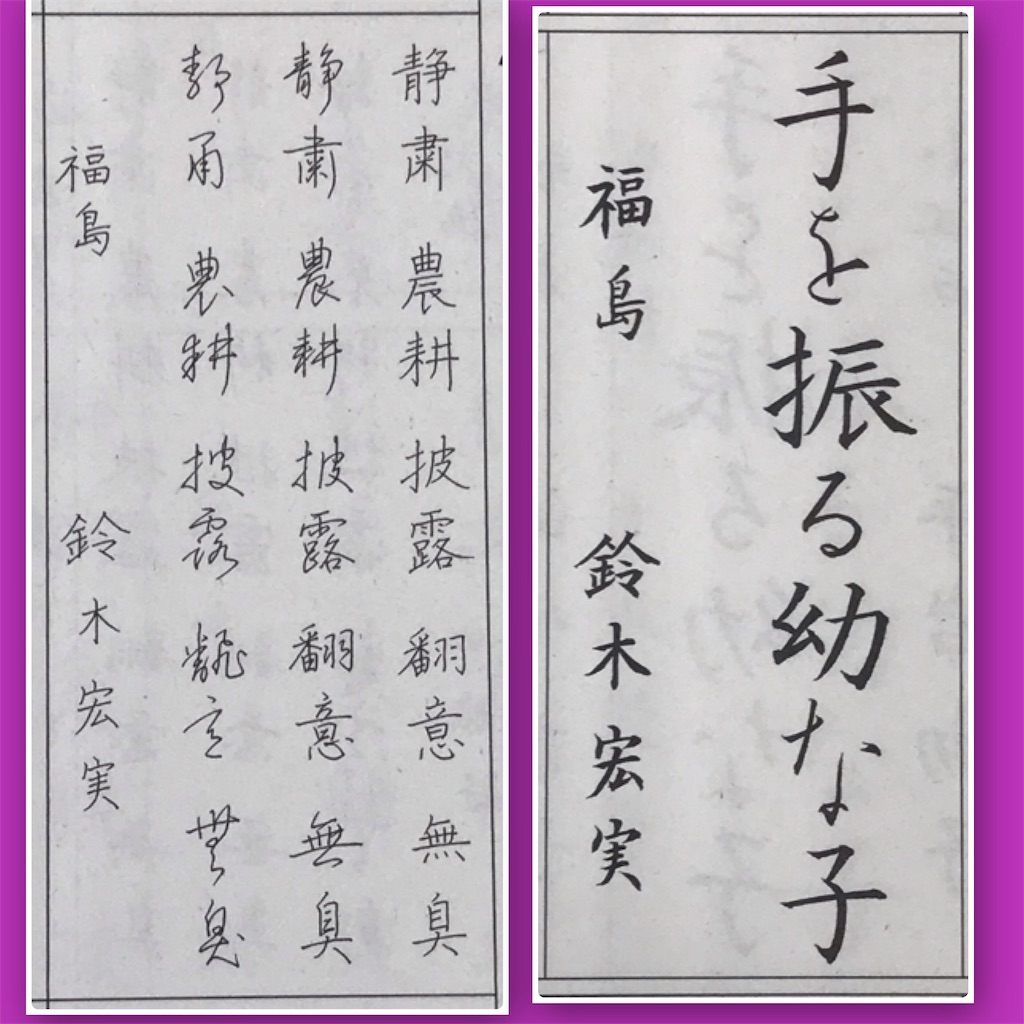 手を振る幼な子
福島 鈴木宏実
静粛 農耕 披露 翻意 無臭
静粛 農耕 披露 翻意 無臭
静粛 農耕 披露 翻意 無臭
福島 鈴木宏実